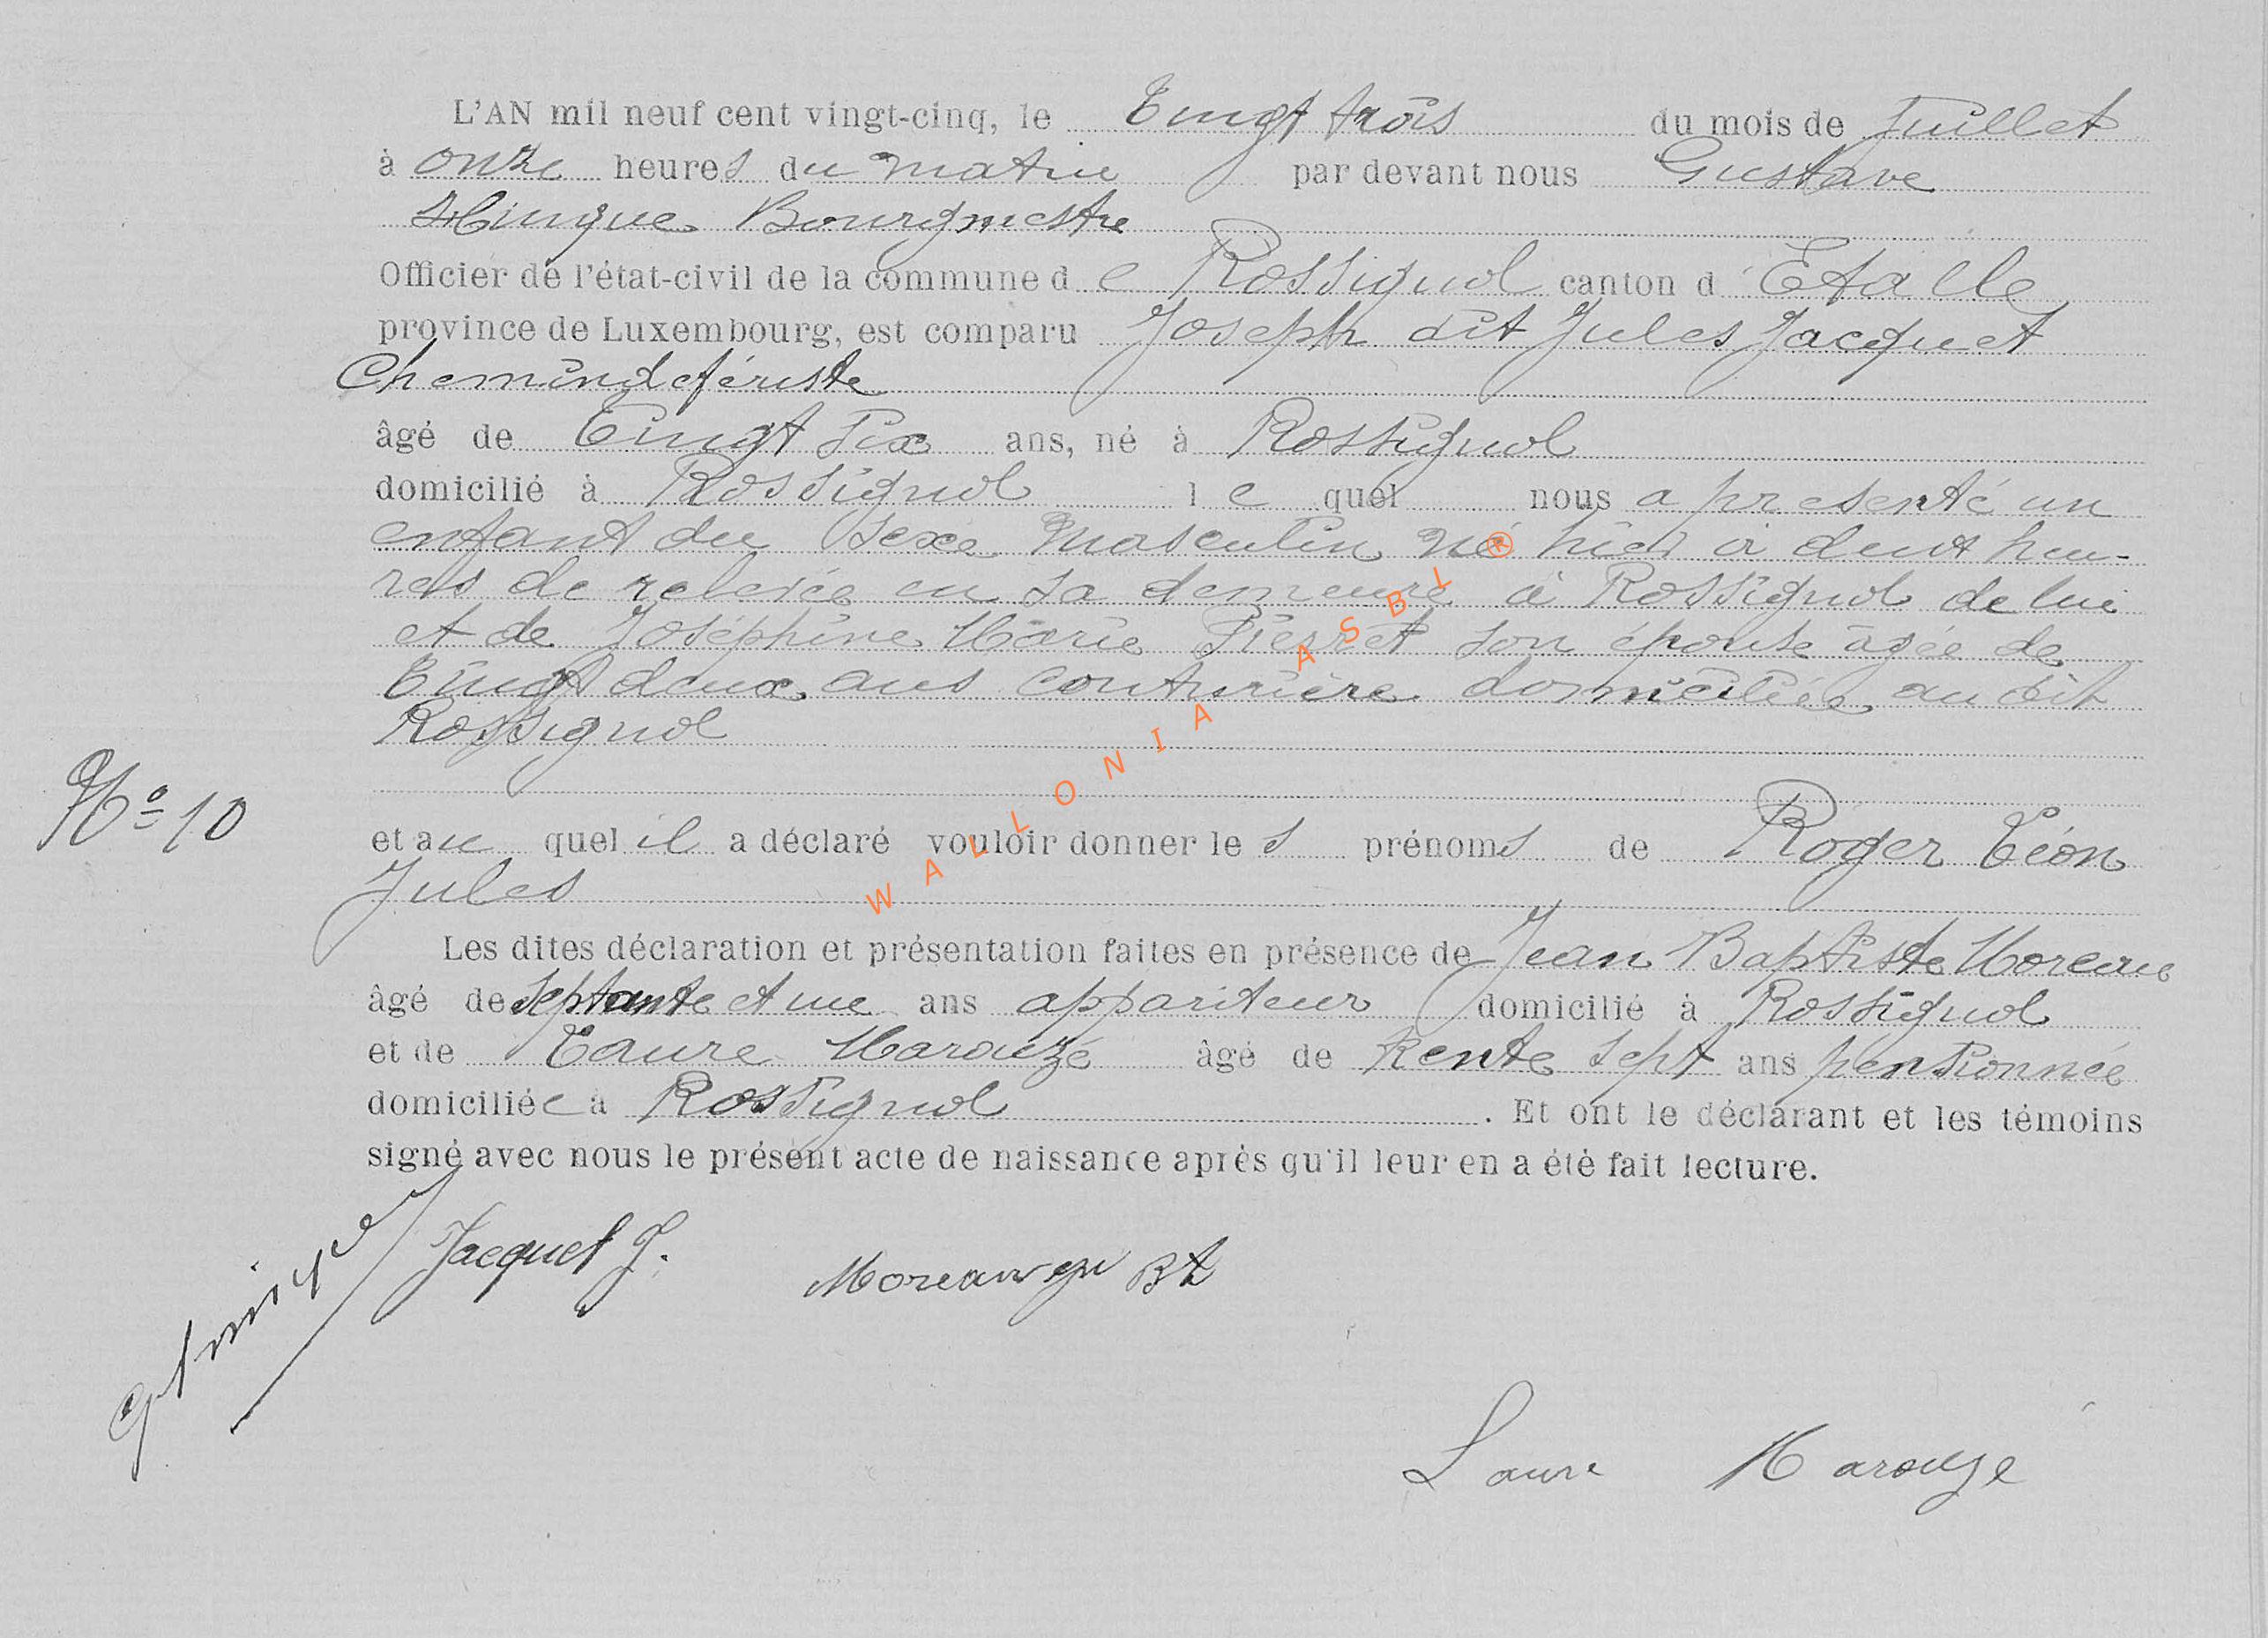 L'AN mil neuf cent vingt-cinq, le Vingt trois du mois de Juillet
à onze heures du matin par devant nous Gustave
Hinque Bourgmestre
Officier de l'état-civil de la commune de Rossignol canton d'Etalle
province de Luxembourg, est comparu Joseph dit Jules Jacquet
Chemindefériste
âgé de Vingt six ans, né à Rossignol
domicilié à Rossignol le quel nous a presenté un
enfant du sexe masculin né hier à deux heu-
res de relevée en sa demeure à Rossignol de lui
et de Joséphine Marie Pierret son épouse âgée de
Vingt deux ans couturière domiciliée au dit
Rossignol
No 10
et au quel il a déclaré vouloir donner les prénoms de Roger Léon
Jules
Les dites déclaration et présentation faites en présence de Jean Baptiste Moreau
âgé de septante et un ans appariteur domicilié à Rossignol
et de Laure Marouzé âgé de trente sept ans pensionnée
domiciliée à Rossignol. Et ont le déclarant et les témoins
signé avec nous le présent acte de naissance après qu'il leur en a été fait lecture.
Jacquet J.
Moreau Bt
Laure Marouzé
WALLONIA ASBL ®